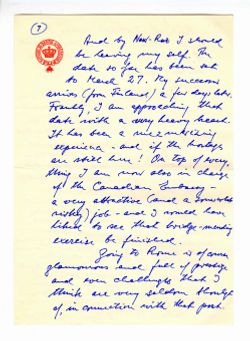 7
And by Now-Ruz I should
be leaving my self. The
date so far has been set
to March 27. My successor
arrives (from Finland) a few days later.
Frankly, I am approaching that
date with a very heavy heart.
It has been a mesmerizing
experience - and if the hostages
are still here! On top of every
thing I am now also in charge
of the Canadian Embassy -
a very attractive (and a somewhat
risky) job - and I would have
liked to see that bridge-mending
exercise be finished.
Going to Rome is of course
glamourous and full of prestige
and even challenges that I
think are very seldom thought
of, in connection with that post.